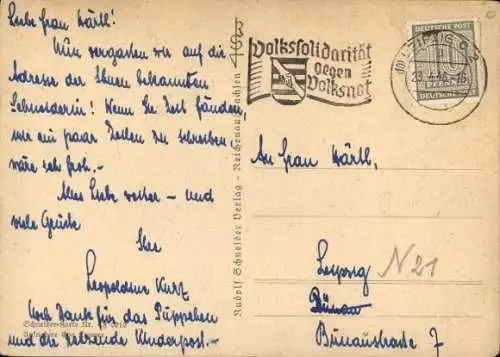 Liebe Frau Härtl!
Nun vergassen wir auf die
Adresse der Ihnen bekannten
Schneiderin! Wenn Sie Zeit fänden,
mir ein paar Zeilen zu schreiben,
wäre ich froh. -
Alles Liebe weiter - und
viele Grüsse
Ihre
Leopoldine Kurz
Noch Dank für das Püppchen
und die reizende Kinderpost. -
Schneider-Karte Nr.
Rudolf Schneider Verlag - Reichenau, Sachsen
Volkssolidarität
gegen
Volksnot
LEIPZIG C 2
23.4.46.-16
DEUTSCHE POST
PFENNIG
An Frau Härtl,
Leipzig N 21
Dünau
Bünaustrasse 7